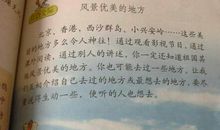 风景优美的地方
北京、香港、西沙群岛、小兴安岭……这些美
丽的地方多么令人神往！通过观看影视节目，通过
别人的讲述，你一定还知道祖国其
他风景优美的地方。你也可能去过一些地方。让我
们互相介绍自己去过的地方或最想去的地方。要尽
量说得生动一些，使听的人也想去。